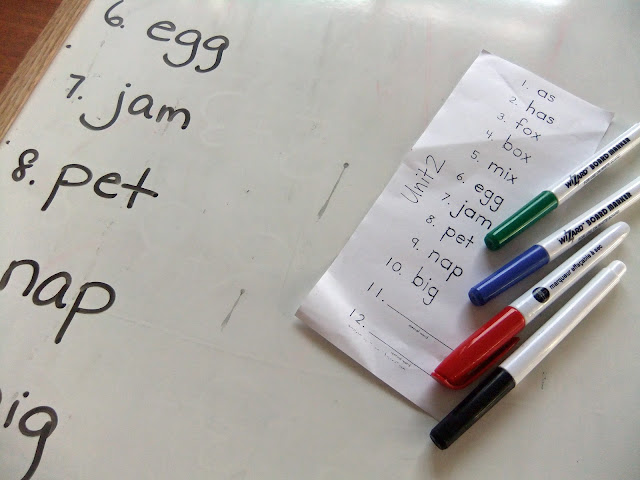 6. egg
7. jam
8. pet
nap
ig
1. as
2. has
3. fox
4. box
5. mix
6. egg
7. jam
8. pet
9. nap
10. big
11.
12.
Unit 2
WIZARD BOARD MARKER
WIZARD BOARD MARKER
marqueur effaçable à sec